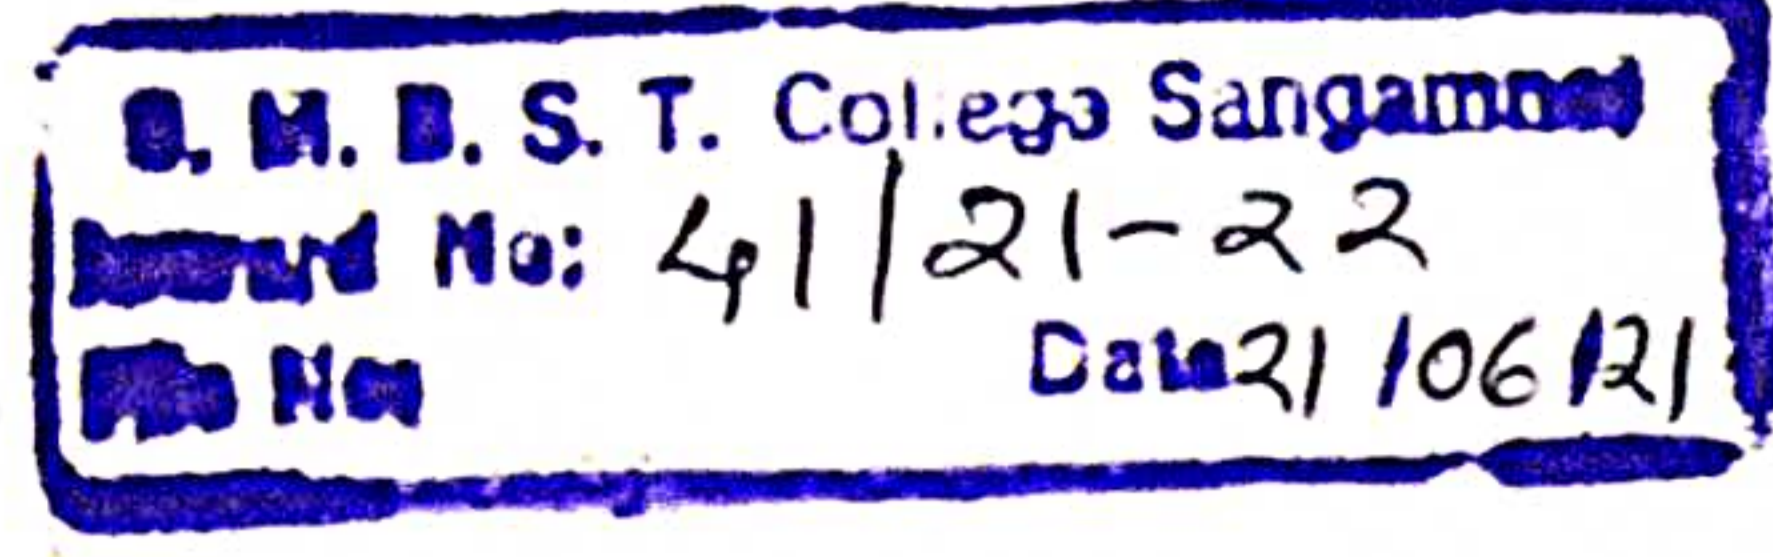 S. M. B. S. T. College Sangamner
Inward No: 41/21-22
File No:
Date 21/06/21